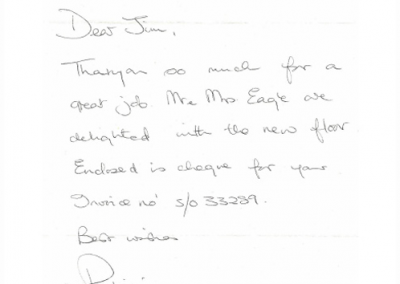 Dear Jim,
Thankyou so much for a
great job Mr & Mrs Eagle are
delighted with the new floor
Enclosed is cheque for your
Invoice no' s/o 33239.
Best wishes